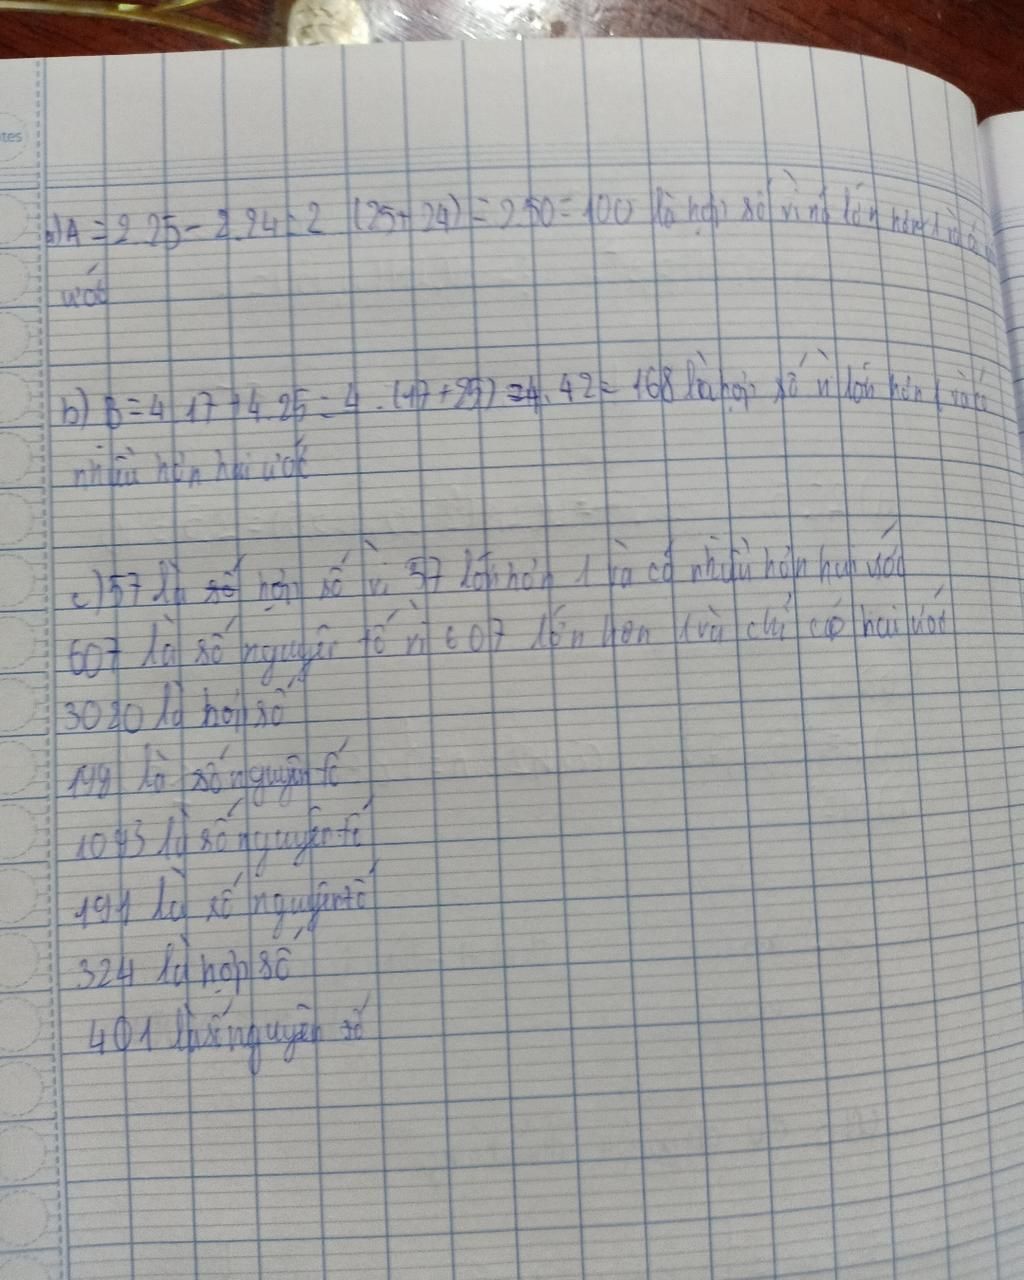 tes
a) A = 2.25 - 2.24 = 2 (25+24) = 2.50 = 100 là hợp số vì nó lớn hơn 1 và có
ước
b) B = 4.17+4.25 = 4.(17+25) = 4.42 = 168 là hợp số vì lớn hơn 1 và có
nhiều hơn hai ước
c) 57 là hợp số vì 57 lớn hơn 1 và có nhiều hơn hai ước
607 là số nguyên tố vì 607 lớn hơn 1 và chỉ có hai ước
3020 là hợp số
là số nguyên tố
là số nguyên tố
191 là số nguyên tố
324 là hợp số
401 là số nguyên số